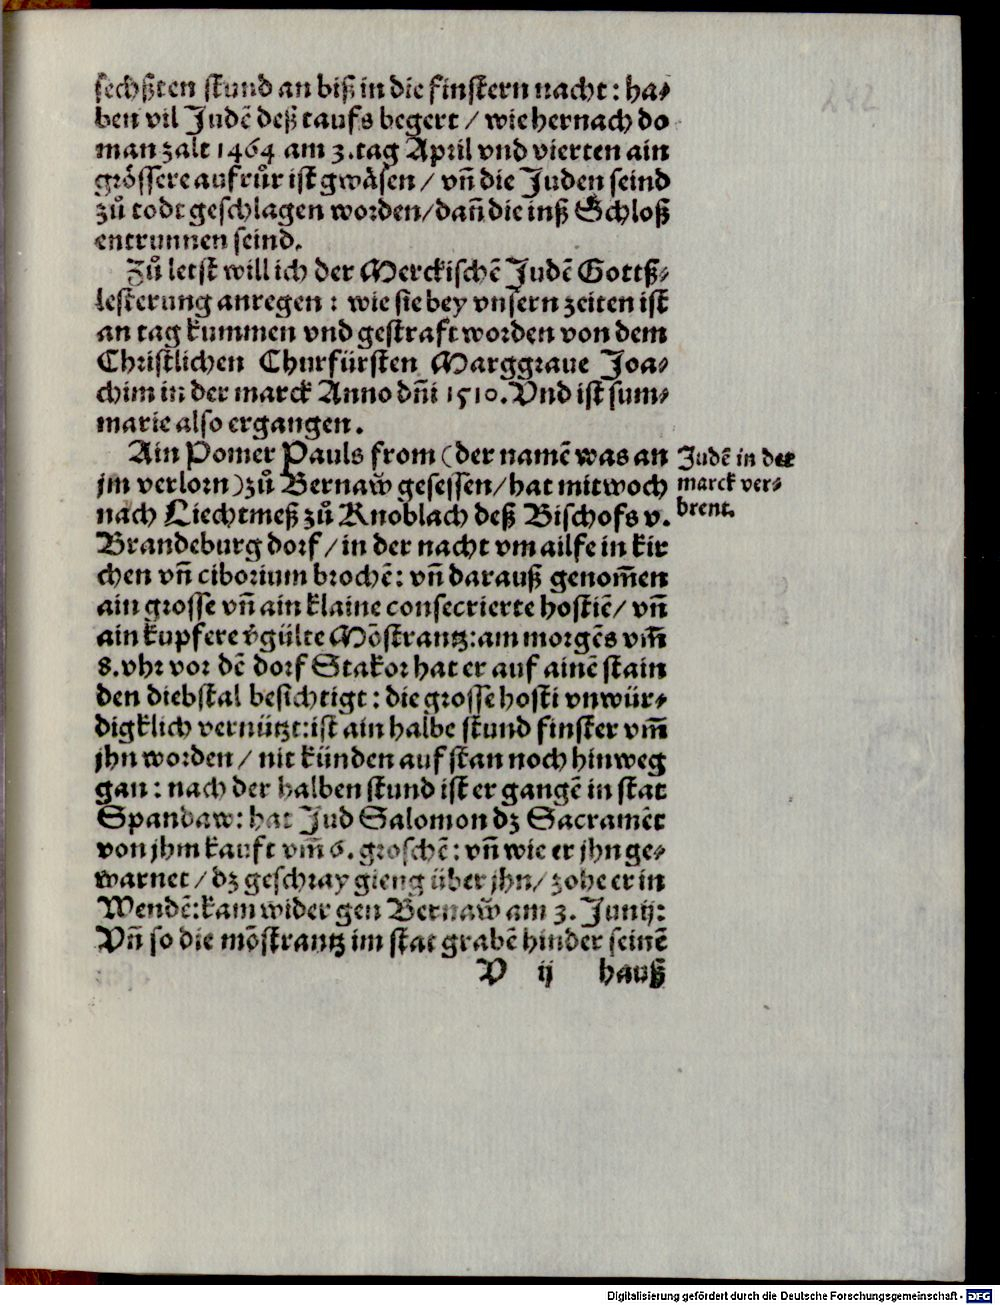 sechßten stund an biß in die finstern nacht: ha⸗
ben vil Judē deß taufs begert / wie hernach do
man zalt 1464 am 3.tag April vnd vierten ain
grössere aufrůr ist gwäsen / vn̄ die Juden seind
zů todt geschlagen worden/dan̄ die inß Schloß
entrunnen seind.
Zů letst will ich der Merckischē Judē Gottß⸗
lesterung anregen : wie sie bey vnsern zeiten ist
an tag kummen vnd gestraft worden von dem
Christlichen Churfürsten Marggraue Joa⸗
chim in der marck Anno dn̄i 1510. Vnd ist sum⸗
marie also ergangen.
Ain Pomer Pauls from (der namē was an
jm verlorn) zů Bernaw̃ gesessen/hat mitwoch
nach Liechtmeß zů Knoblach deß Bischofs v.
Brandeburg dorf / in der nacht vm ailfe in kir
chen vn̄ ciborium brochē: vn̄ darauß genom̄en
ain grosse vn̄ ain klaine consecrierte hostiē/ vn̄
ain kupfere v̄gülte Mōstrantz: am morgēs vm̄
8. vhr vor dē dorf Stakor hat er auf ainē stain
den diebstal besichtigt : die grosse hosti vnwür⸗
digklich vernützt: ist ain halbe stund finster vm̄
jhn worden / nit künden auf stan noch hinweg
gan : nach der halben stund ist er gangē in stat
Spandaw: hat Jud Salomon dz Sacramēt
von jhm kauft vm̄ 6. groschē: vn̄ wie er jhn ge⸗
warnet / dz geschray gieng über jhn/ zohe er in
Wendē: kam wider gen Bernaw̃ am 3. Junij:
Vn̄ so die mōstrantz im stat grabē hinder seinē
V ij hauß
Judē in der
marck ver⸗
brent.
242
Digitalisierung gefördert durch die Deutsche Forschungsgemeinschaft - DFG